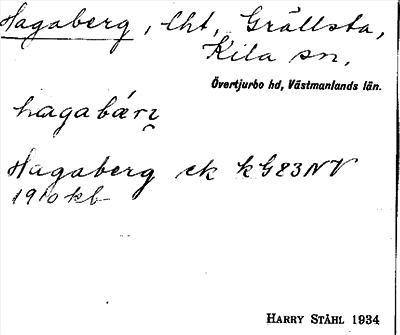 Hagaberg, lht, Grällsta,
Kila sn,
Övertjurbo hd, Västmanlands län.
hagabærʒ
Hagaberg ek kG83NV
1910 kb
HARRY STÅHL 1934